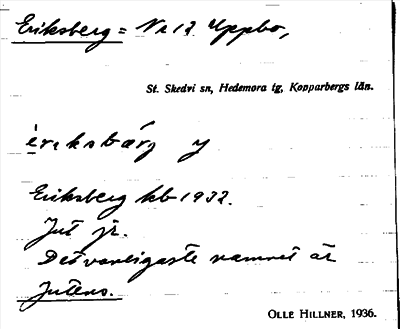 Eriksberg = Nr 12 Uppbo,
St. Skedvi sn, Hedemora tg, Kopparbergs län.
y
Eriksberg kb 1932.
Jut jr.
Det vanligaste namnet är
Jutens.
OLLE HILLNER, 1936.